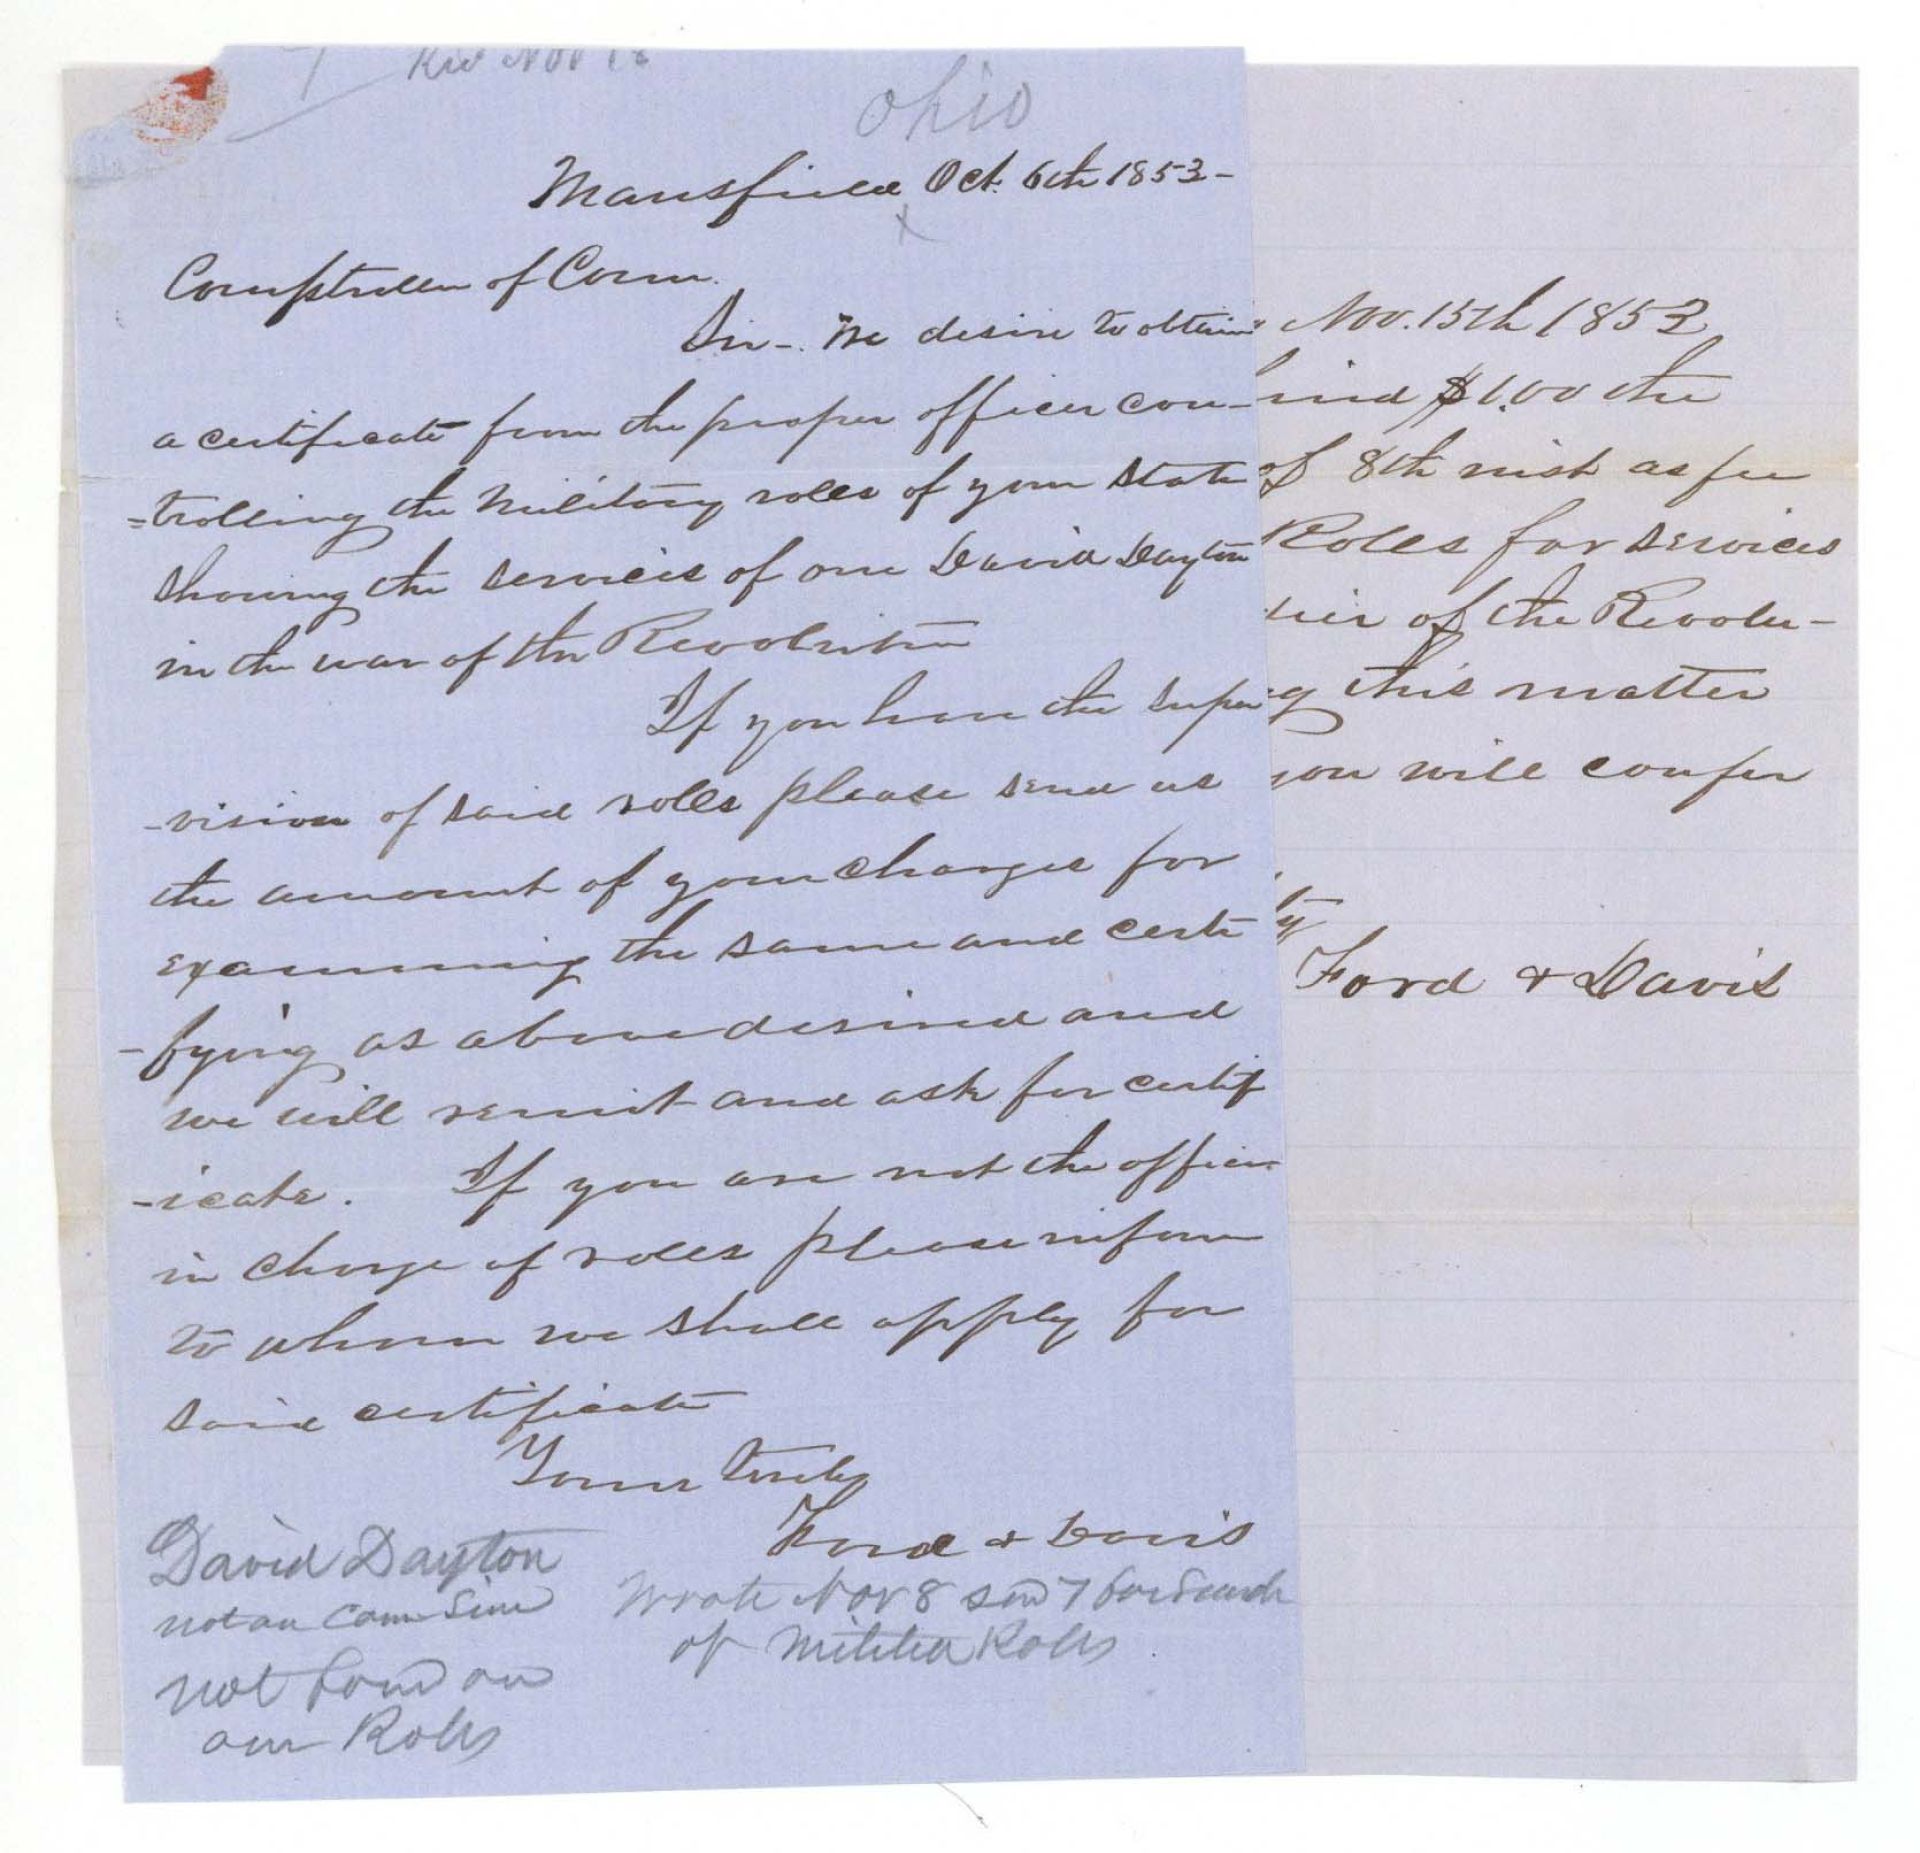 Ohio
Mansfield Oct. 6th 1853-
x
Comptroller of Conn.
Sir-. We desire to obtain
a certificate from the proper officer con-
=trolling the Military rolls of your State
showing the services of one David Dayton
in the war of the Revolution
If you have the super
-vision of said rolls please send us
the amount of your charges for
examining the same and certi
-fying as above desired and
we will remit and ask for certif
-icate. If you are not the officer
in charge of rolls please inform
to whom we shall apply for
said certificate
Yours truly
Ford & Davis
David Dayton
not on Conn Line
not found on
our Rolls
Wrote Nov 8 for Search
of Militia Rolls
Nov. 15th 1853
$1.00 the
of 8th inst as fee
Rolls for services
of the Revolu-
this matter
you will confer
Ford & Davis